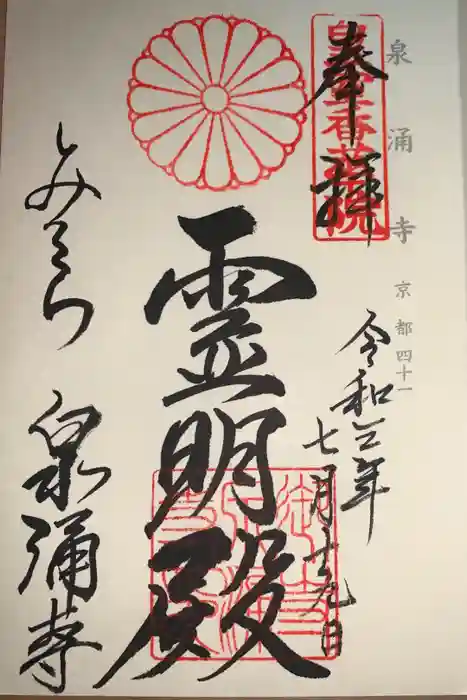 泉涌寺 京都四十一
皇室香華院
奉拝
令和三年
七月十九日
霊明殿
みてら 泉涌寺